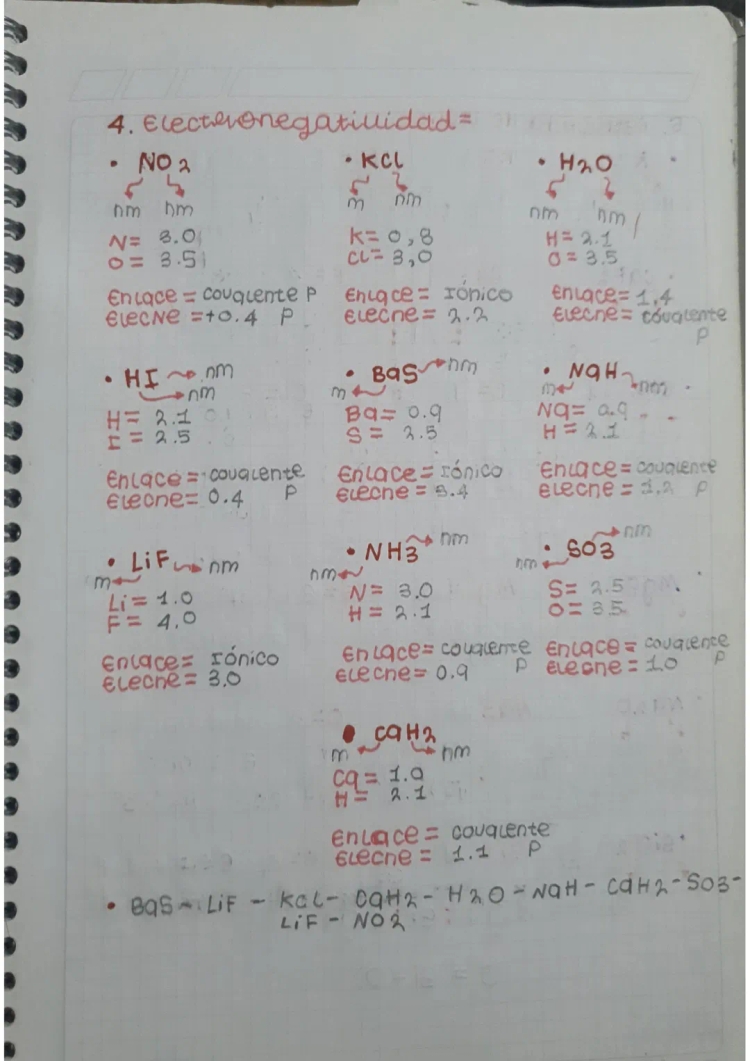 4. Electronegatividad=
• NO2
nm nm
N= 3.0
O= 3.5
Enlace= covalente P
Elecne=+0.4 P
• KCl
m nm
K= 0,8
Cl= 3,0
Enlace= Iónico
Elecne= 2.2
• H2O
nm nm
H= 2.1
O= 3.5
Enlace= 1,4
Elecne= covalente
P
• HI nm
nm
H= 2.1
I= 2.5
Enlace= covalente
Elecne= 0.4 P
• BaS nm
m
Ba= 0.9
S= 2.5
Enlace= Iónico
Elecne= 3.4
• NaH
m nm
Na= 0.9
H= 2.1
Enlace= covalente
Elecne= 1,2 P
• LiF nm
m
Li= 1.0
F= 4.0
Enlace= Iónico
Elecne= 3.0
• NH3 nm
nm
N= 3.0
H= 2.1
Enlace= covalente
Elecne= 0.9 P
• SO3 nm
nm
S= 2.5
O= 3.5
Enlace= covalente
Elecne= 1.0 P
• CaH2
m nm
Ca= 1.0
H= 2.1
Enlace= covalente
Elecne= 1.1 P
• BaS - LiF - KCl - CaH2 - H2O - NaH - CaH2 - SO3 -
LiF - NO2